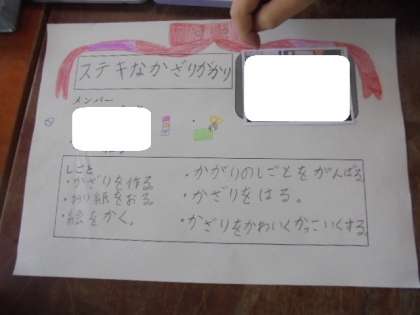 ステキなかざりがかり
メンバー
しごと
・かざりを作る。
・おり紙をおる。
・絵をかく。
・かがりのしごとをがんばる
・かざりをはる。
・かざりをかわいくかっこいくする